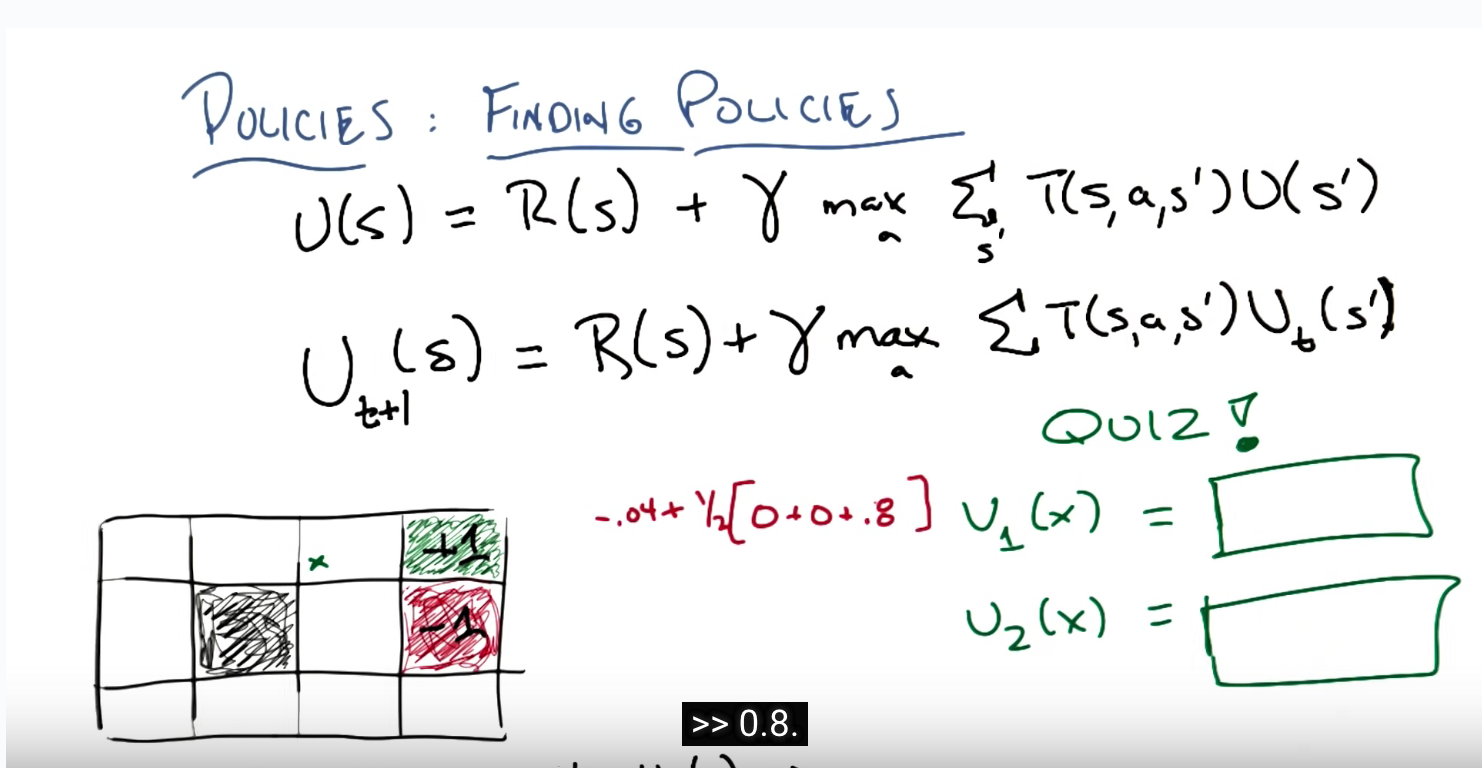 POLICIES: FINDING POLICIES
U(s) = R(s) + γ max_a Σ_s' T(s,a,s')U(s')
U_t+1(s) = R(s) + γ max_a Σ T(s,a,s')U_t(s')
QUIZ!
-.04+ 1/2[0+0+.8] U_1(x) =
x +1
U_2(x) =
-1
>> 0.8.